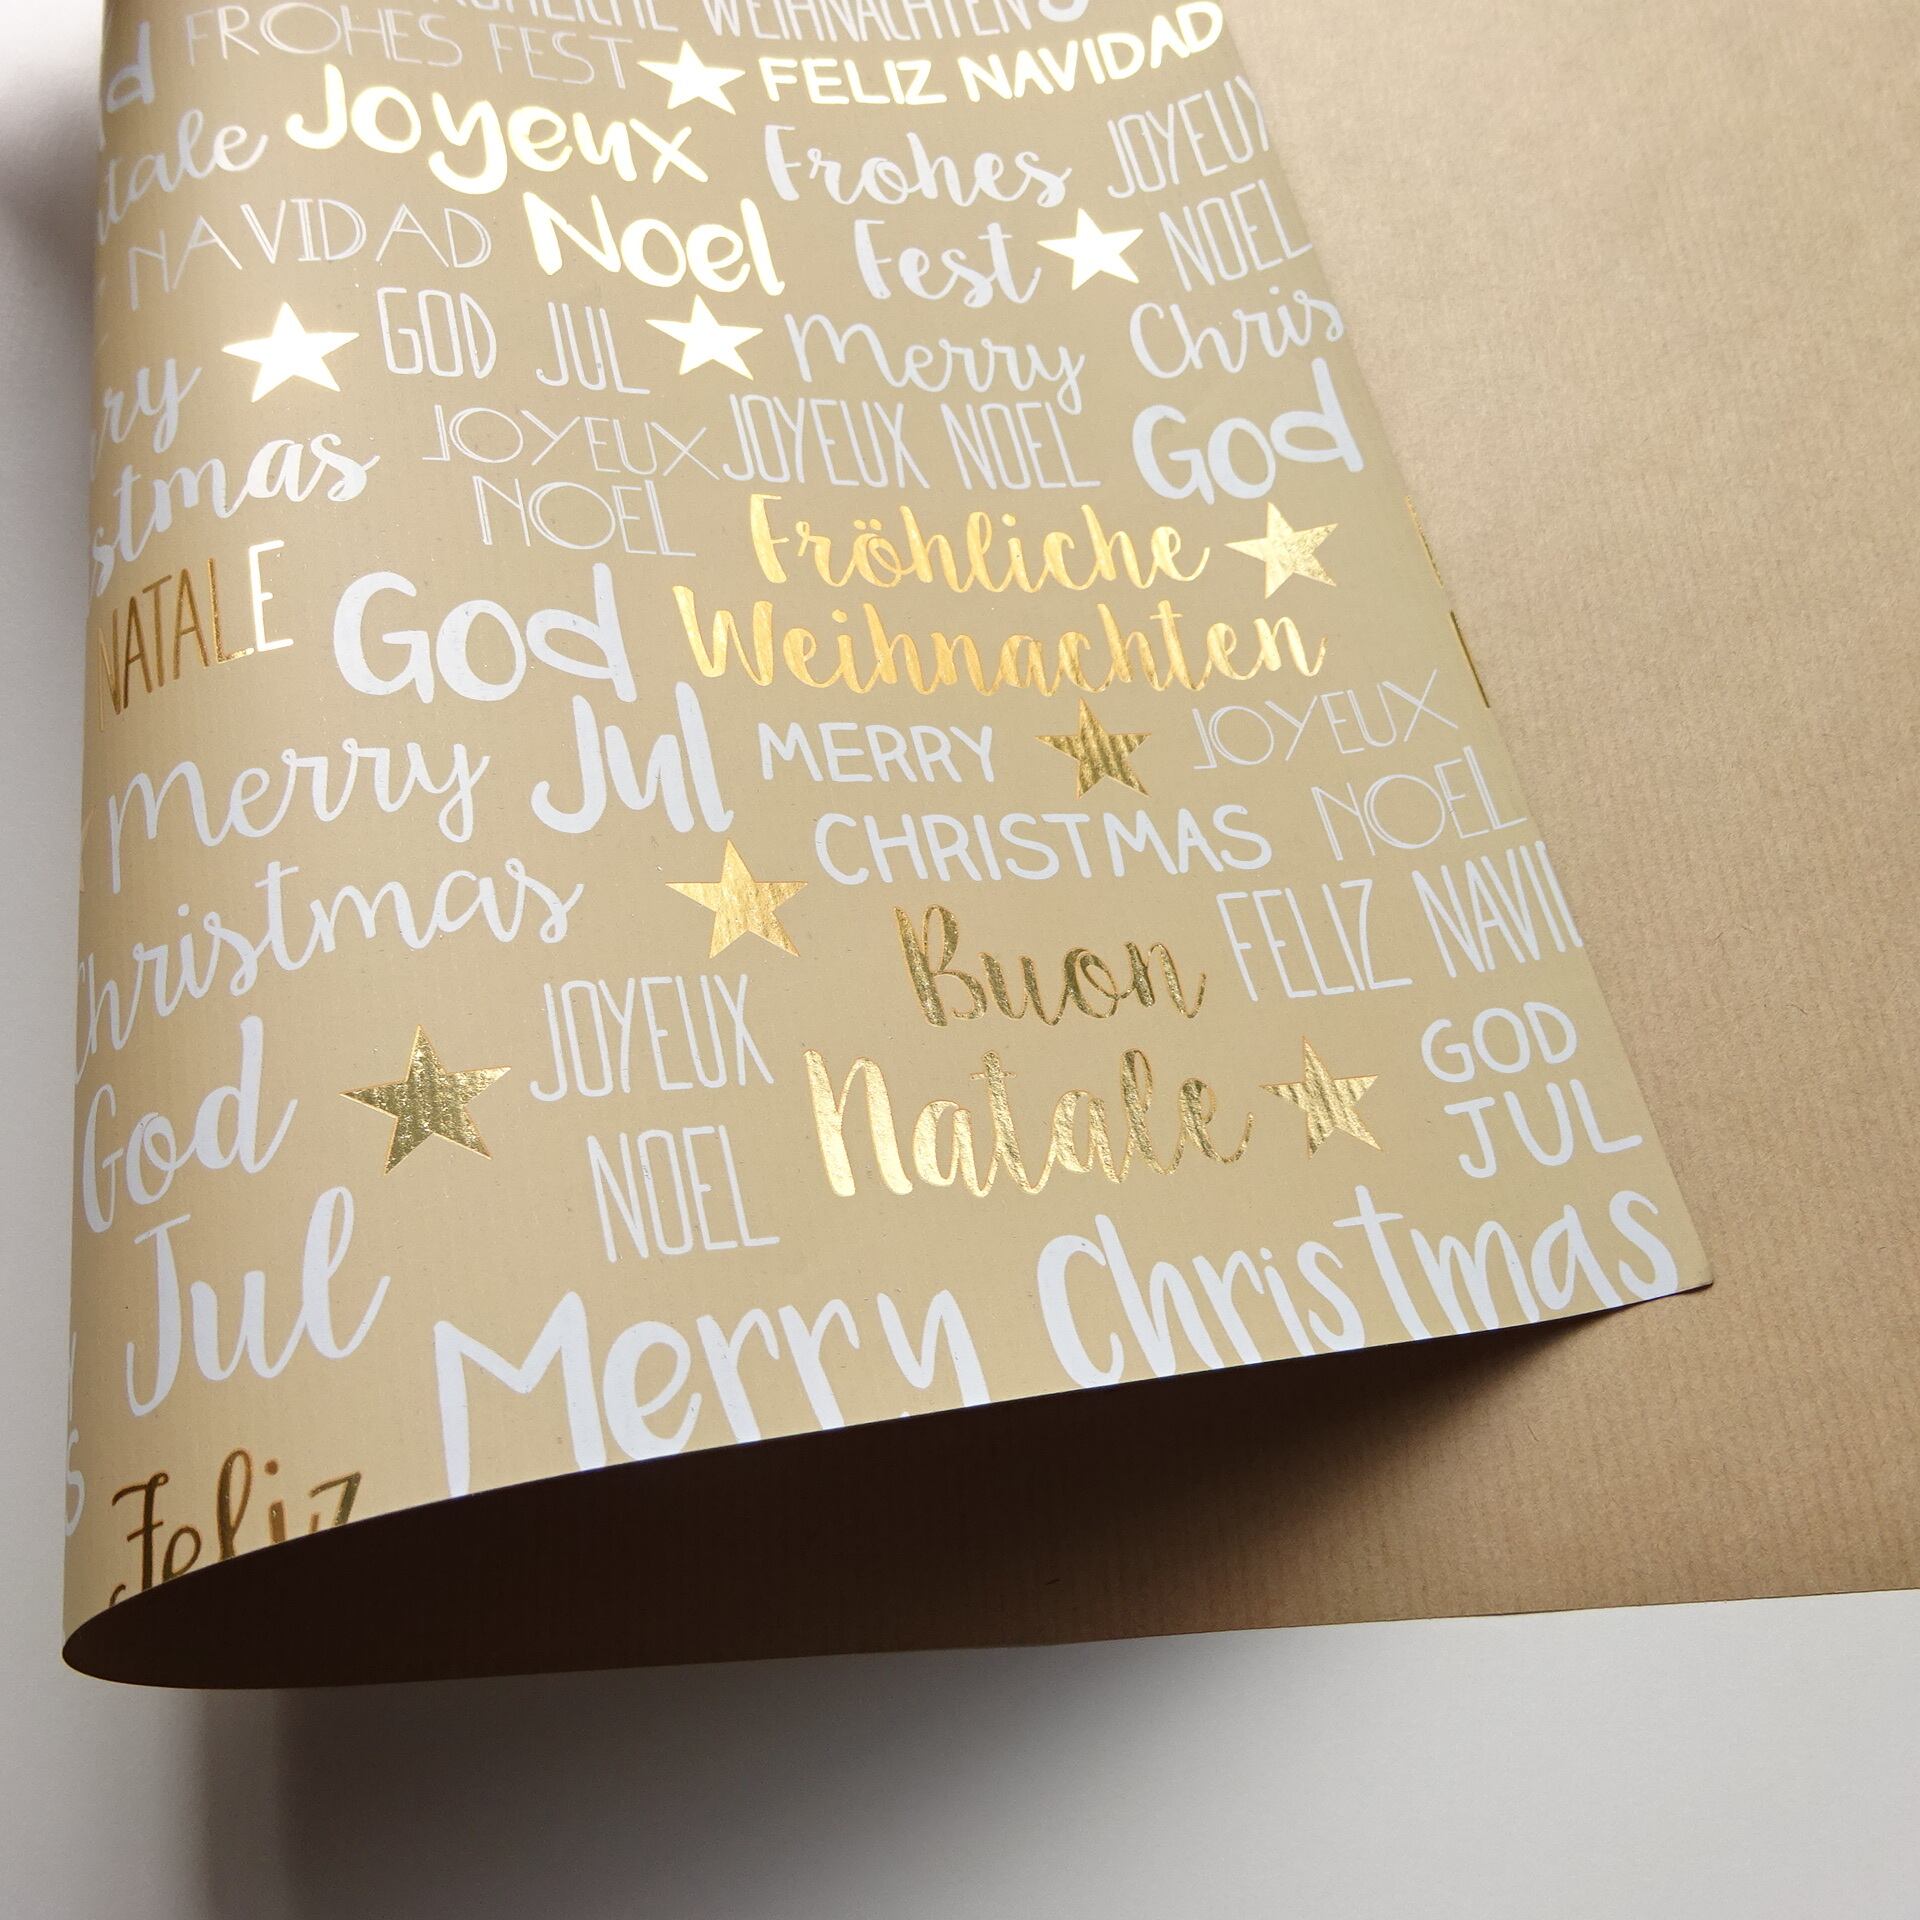 WEIHNACHTEN
FROHES FEST
FELIZ NAVIDAD
Joyeux
Noel
Frohes
Fest
JOYEUX
NOEL
NAVIDAD
GOD JUL
Merry Chris
JOYEUX
NOEL
JOYEUX NOEL
God
stmas
NATALE
God
Jul
Fröhliche
Weihnachten
Merry
Christmas
MERRY
CHRISTMAS
JOYEUX
NOEL
FELIZ NAVI
Buon
Natale
JOYEUX
NOEL
God
Jul
GOD
JUL
Merry Christmas
Feliz